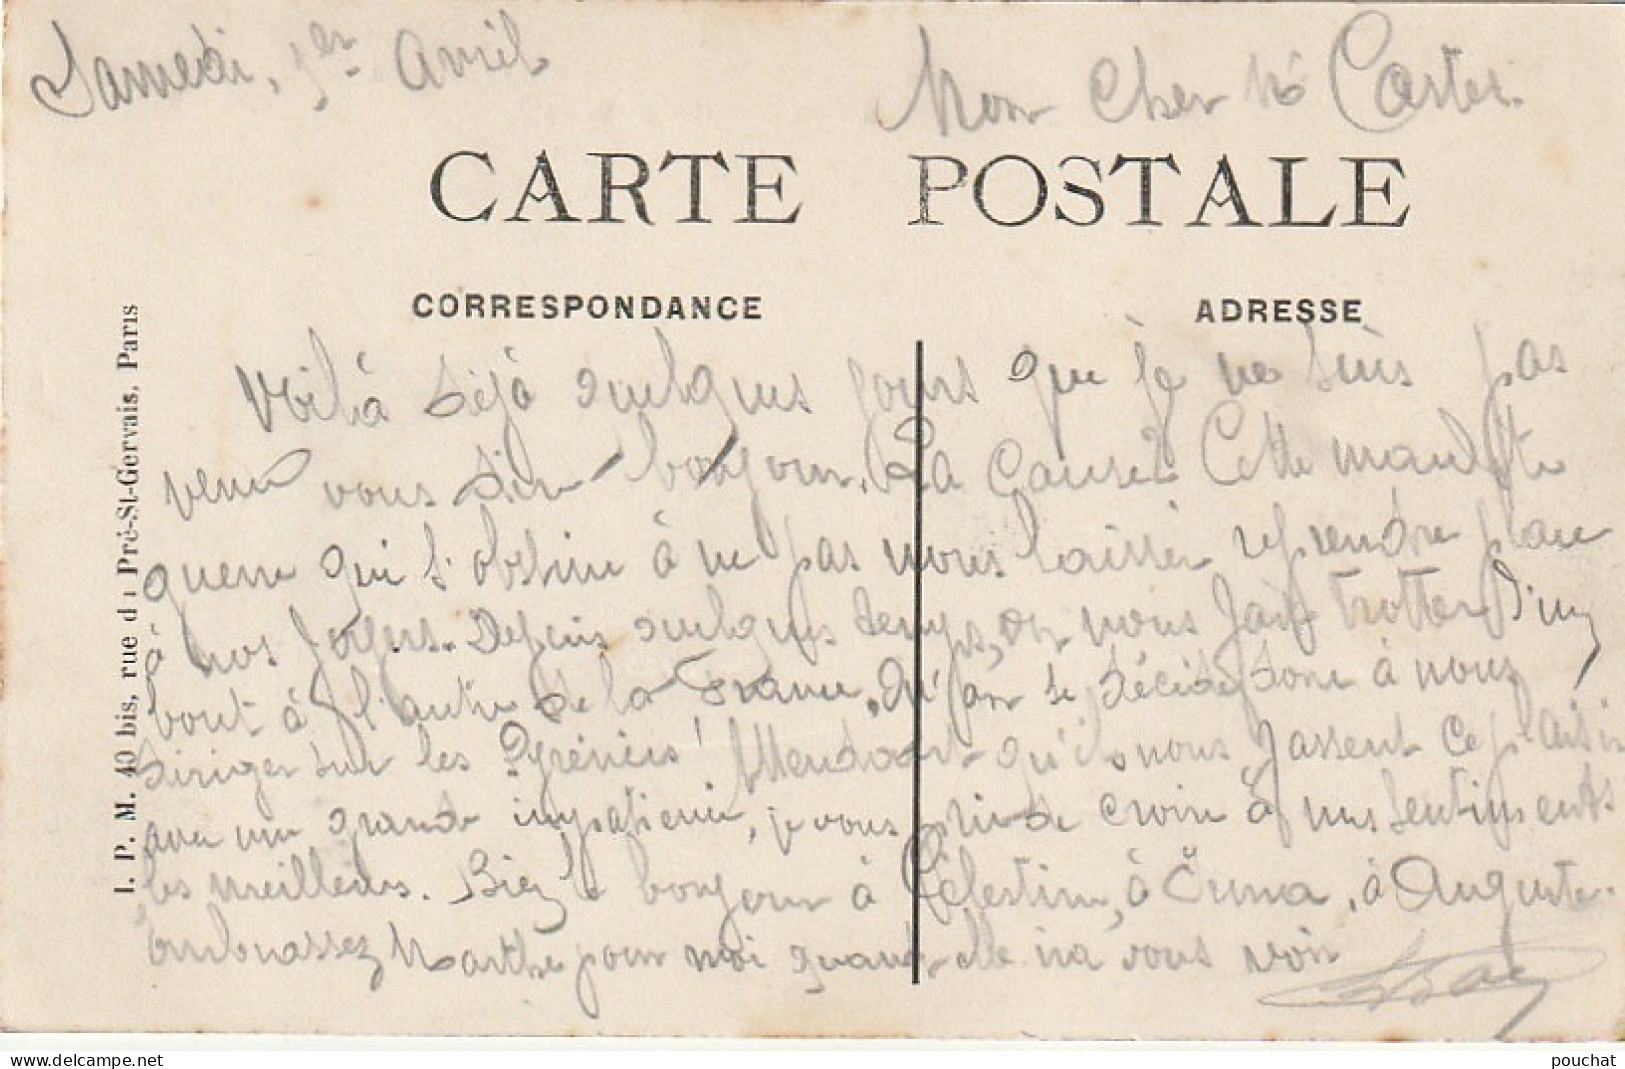 Samedi, 1er Avril
Mon Cher Mr Carter.
CARTE POSTALE
CORRESPONDANCE
ADRESSE
Voilà déjà quelques jours que je ne suis pas
venu vous dire bonjour. La cause? Cette maudite
guerre qui s'obstine à ne pas nous laisser reprendre place
à nos foyers. Depuis quelques temps, on nous fait trotter d'un
bout à l'autre de la France. Qu'on se décide donc à nous
diriger sur les Pyrénées! Attendant qu'ils nous fassent ce plaisir
avec une grande impatience, je vous prie de croire à mes sentiments
les meilleurs. Bien le bonjour à Célestine, à Emma, à Auguste.
embrassez Marthe pour moi quand elle ira vous voir
I. P. M. 40 bis, rue du Pré-St-Gervais, Paris
www.delcampe.net
pouchat